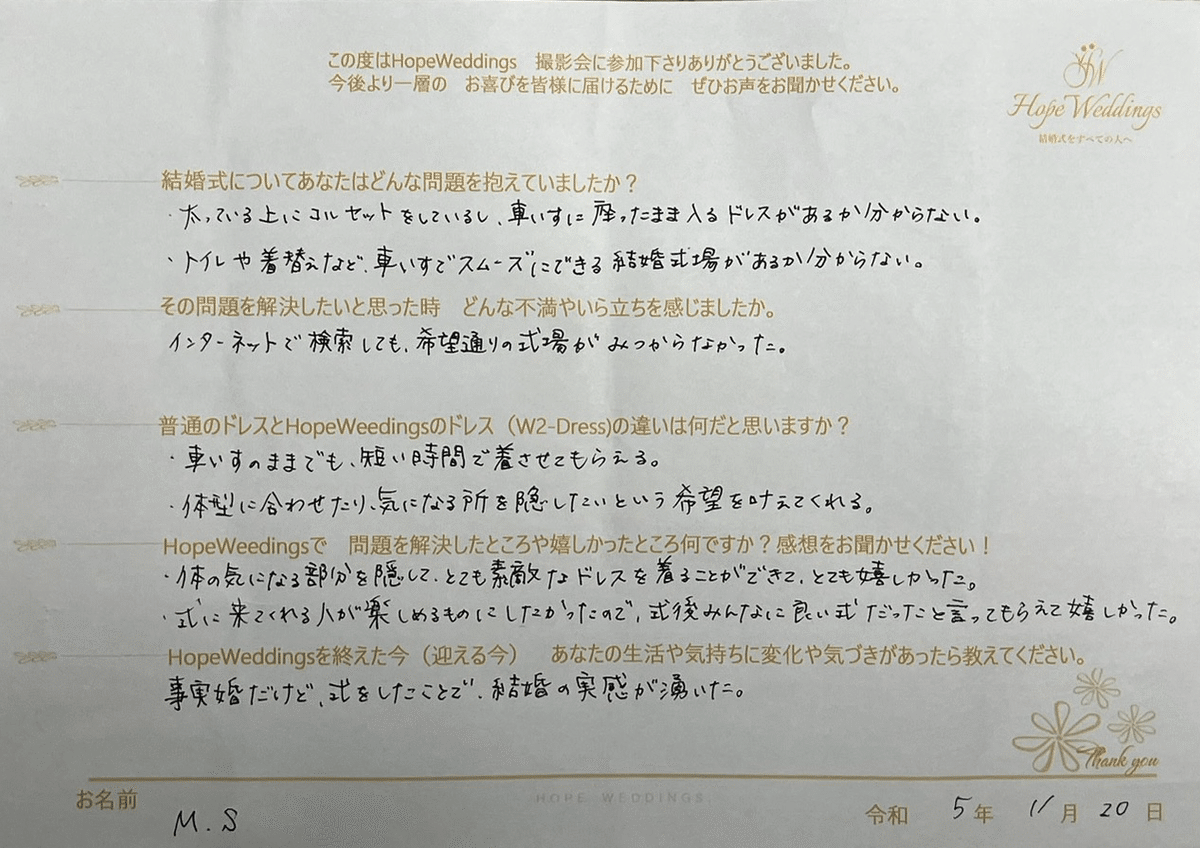 この度はHopeWeddings　撮影会に参加下さりありがとうございました。
今後より一層の　お喜びを皆様に届けるために　ぜひお声をお聞かせください。
Hope Weddings
結婚式をすべての人へ
結婚式についてあなたはどんな問題を抱えていましたか？
・太っている上にコルセットをしているし、車いすに座ったまま入るドレスがあるか分からない。
・トイレや着替えなど、車いすでスムーズにできる結婚式場があるか分からない。
その問題を解決したいと思った時　どんな不満やいら立ちを感じましたか。
インターネットで検索しても、希望通りの式場がみつからなかった。
普通のドレスとHopeWeedingsのドレス（W2-Dress)の違いは何だと思いますか？
・車いすのままでも、短い時間で着させてもらえる。
・体型に合わせたり、気になる所を隠したいという希望を叶えてくれる。
HopeWeedingsで　問題を解決したところや嬉しかったところ何ですか？感想をお聞かせください！
・体の気になる部分を隠して、とても素敵なドレスを着ることができて、とても嬉しかった。
・式に来てくれる人が楽しめるものにしたかったので、式後みんなに良い式だったと言ってもらえて嬉しかった。
HopeWeddingsを終えた今（迎える今）　あなたの生活や気持ちに変化や気づきがあったら教えてください。
事実婚だけど、式をしたことで、結婚の実感が湧いた。
Thank you
HOPE WEDDINGS.
お名前　M.S
令和　5年　11月　20日